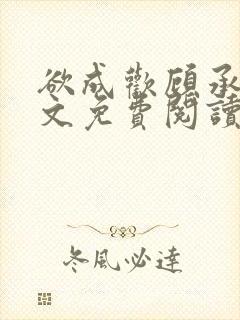 欲成歡顧承
文免費閱讀
冬風必達